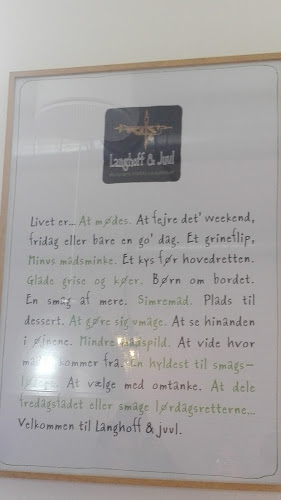 Langhoff & Juul
Livet er... At mødes. At fejre det' weekend,
fridag eller bare en go' dag. Et grineflip,
Minus madsminke. Et kys før hovedretten.
Glade grise og køer. Børn om bordet.
En smag af mere. Simremad. Plads til
dessert. At gøre sig umage. At se hinanden
i øjnene. Mindre madspild. At vide hvor
kommer fra. En hyldest til smags-
At vælge med omtanke. At dele
fredagsfadet eller smage lørdagsretterne...
Velkommen til Langhoff & Juul.